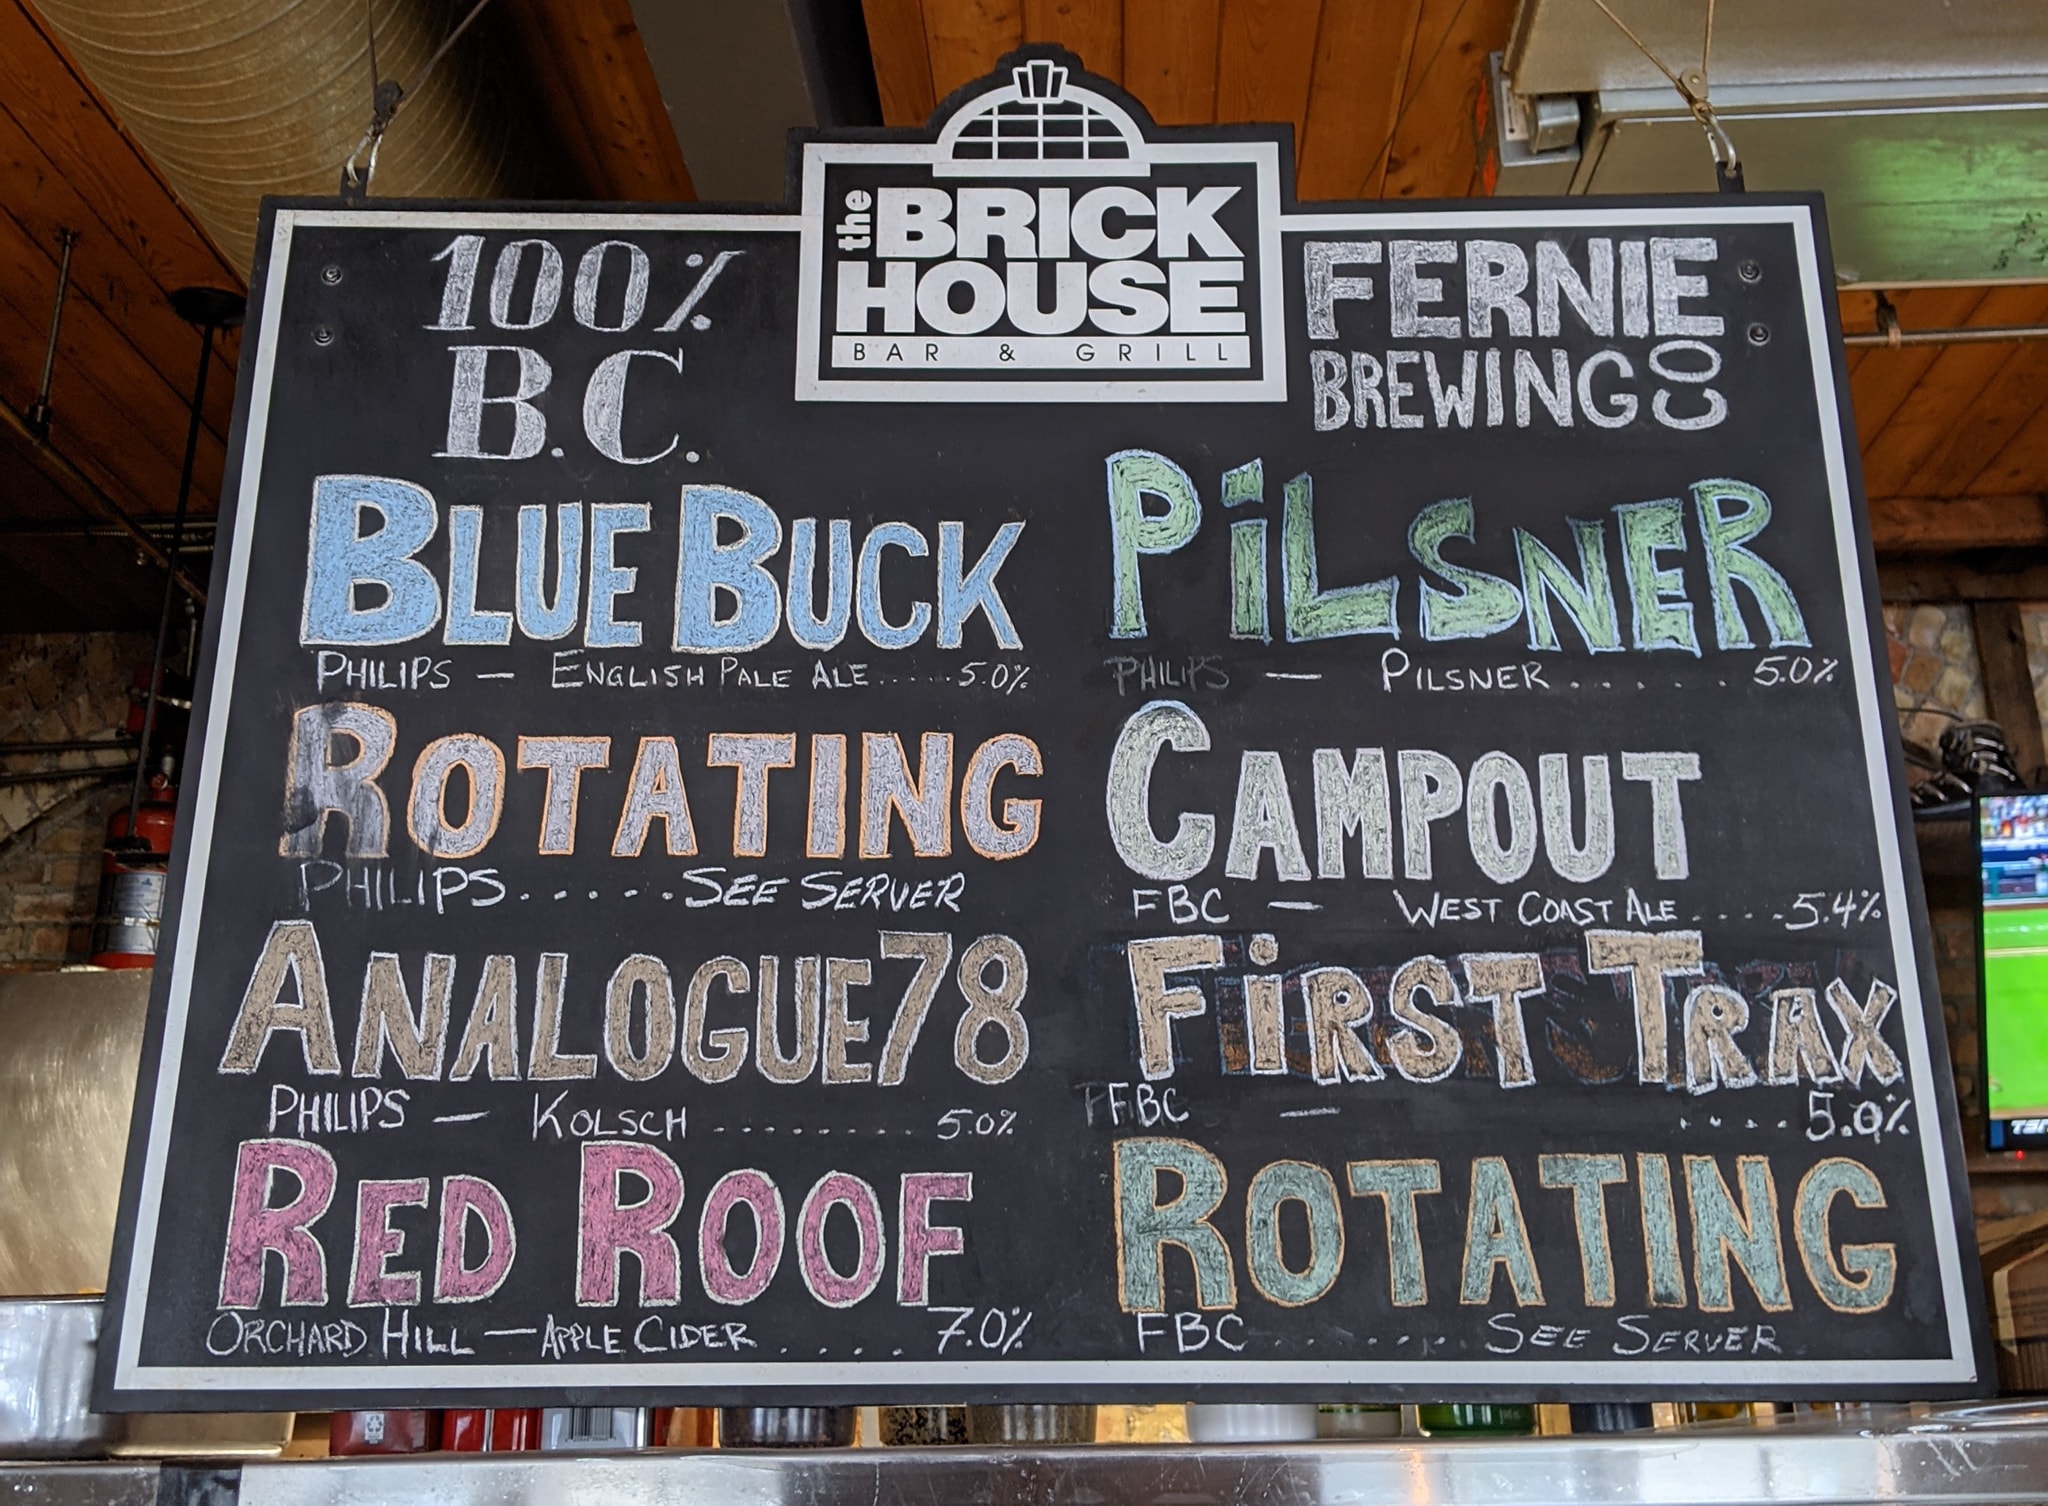 the BRICK
HOUSE
BAR & GRILL
100%
B.C.
BLUE BUCK
PHILIPS — ENGLISH PALE ALE.....5.0%
ROTATING
PHILIPS......SEE SERVER
ANALOGUE78
PHILIPS — KOLSCH ........ 5.0%
RED ROOF
ORCHARD HILL — APPLE CIDER .... 7.0%
FERNIE
BREWING CO
PiLSNER
PHILIPS — PILSNER ...... 5.0%
CAMPOUT
FBC — WEST COAST ALE ....5.4%
FiRST TRAX
FBC — .... 5.0%
ROTATING
FBC ....... SEE SERVER